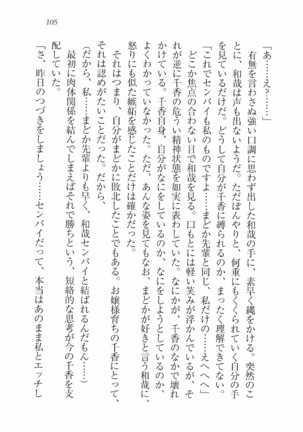 105
「あ……え？……」
有無を言わさぬ強い口調に思わず出した和哉の手に、素早く縄をかける。突然のこ
とに、和哉は声も出ないようだ。ただぼんやりと、何重にもくくられていく自分の手
を見ているだけだ。どうして自分が千香に縛られるのか、まったく理解できない。
「これでセンパイも私のものですよ……まどか先輩と同じ、私だけの……えへへ」
どこか焦点の合わない目で和哉を見る。口もとには軽い笑みが浮かんでいるが、そ
れが逆に千香の危うい精神状態を如実に表わしていた。なにかが、千香のなかで壊れ
かけている。千香自身、自分がなにをしているのか、なにをしようとしているのか、
よくわかっていなかった。ただ、あんな姿を見てもなお、まどかが好きと言う和哉に、
怒りにも似た嫉妬を感じたことだけは確かだった。
それはつまり、自分がまどかに敗北したことでもある。お嬢様育ちの千香にとって、
それは認めがたいことだった。だから、
（だから、私……まどか先輩よりも早く、和哉センパイと結ばれるんだもん……）
最初に肉体関係を結んでしまえばそれで勝ちという、短絡的な思考が今の千香を支
配していた。
「さ、昨日のつづきをしましょう……センパイだって、本当はあのまま私とエッチし